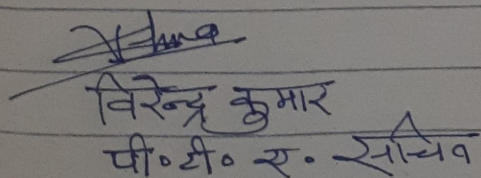 विरेन्द्र कुमार
पी॰टी॰ए॰ सचिव